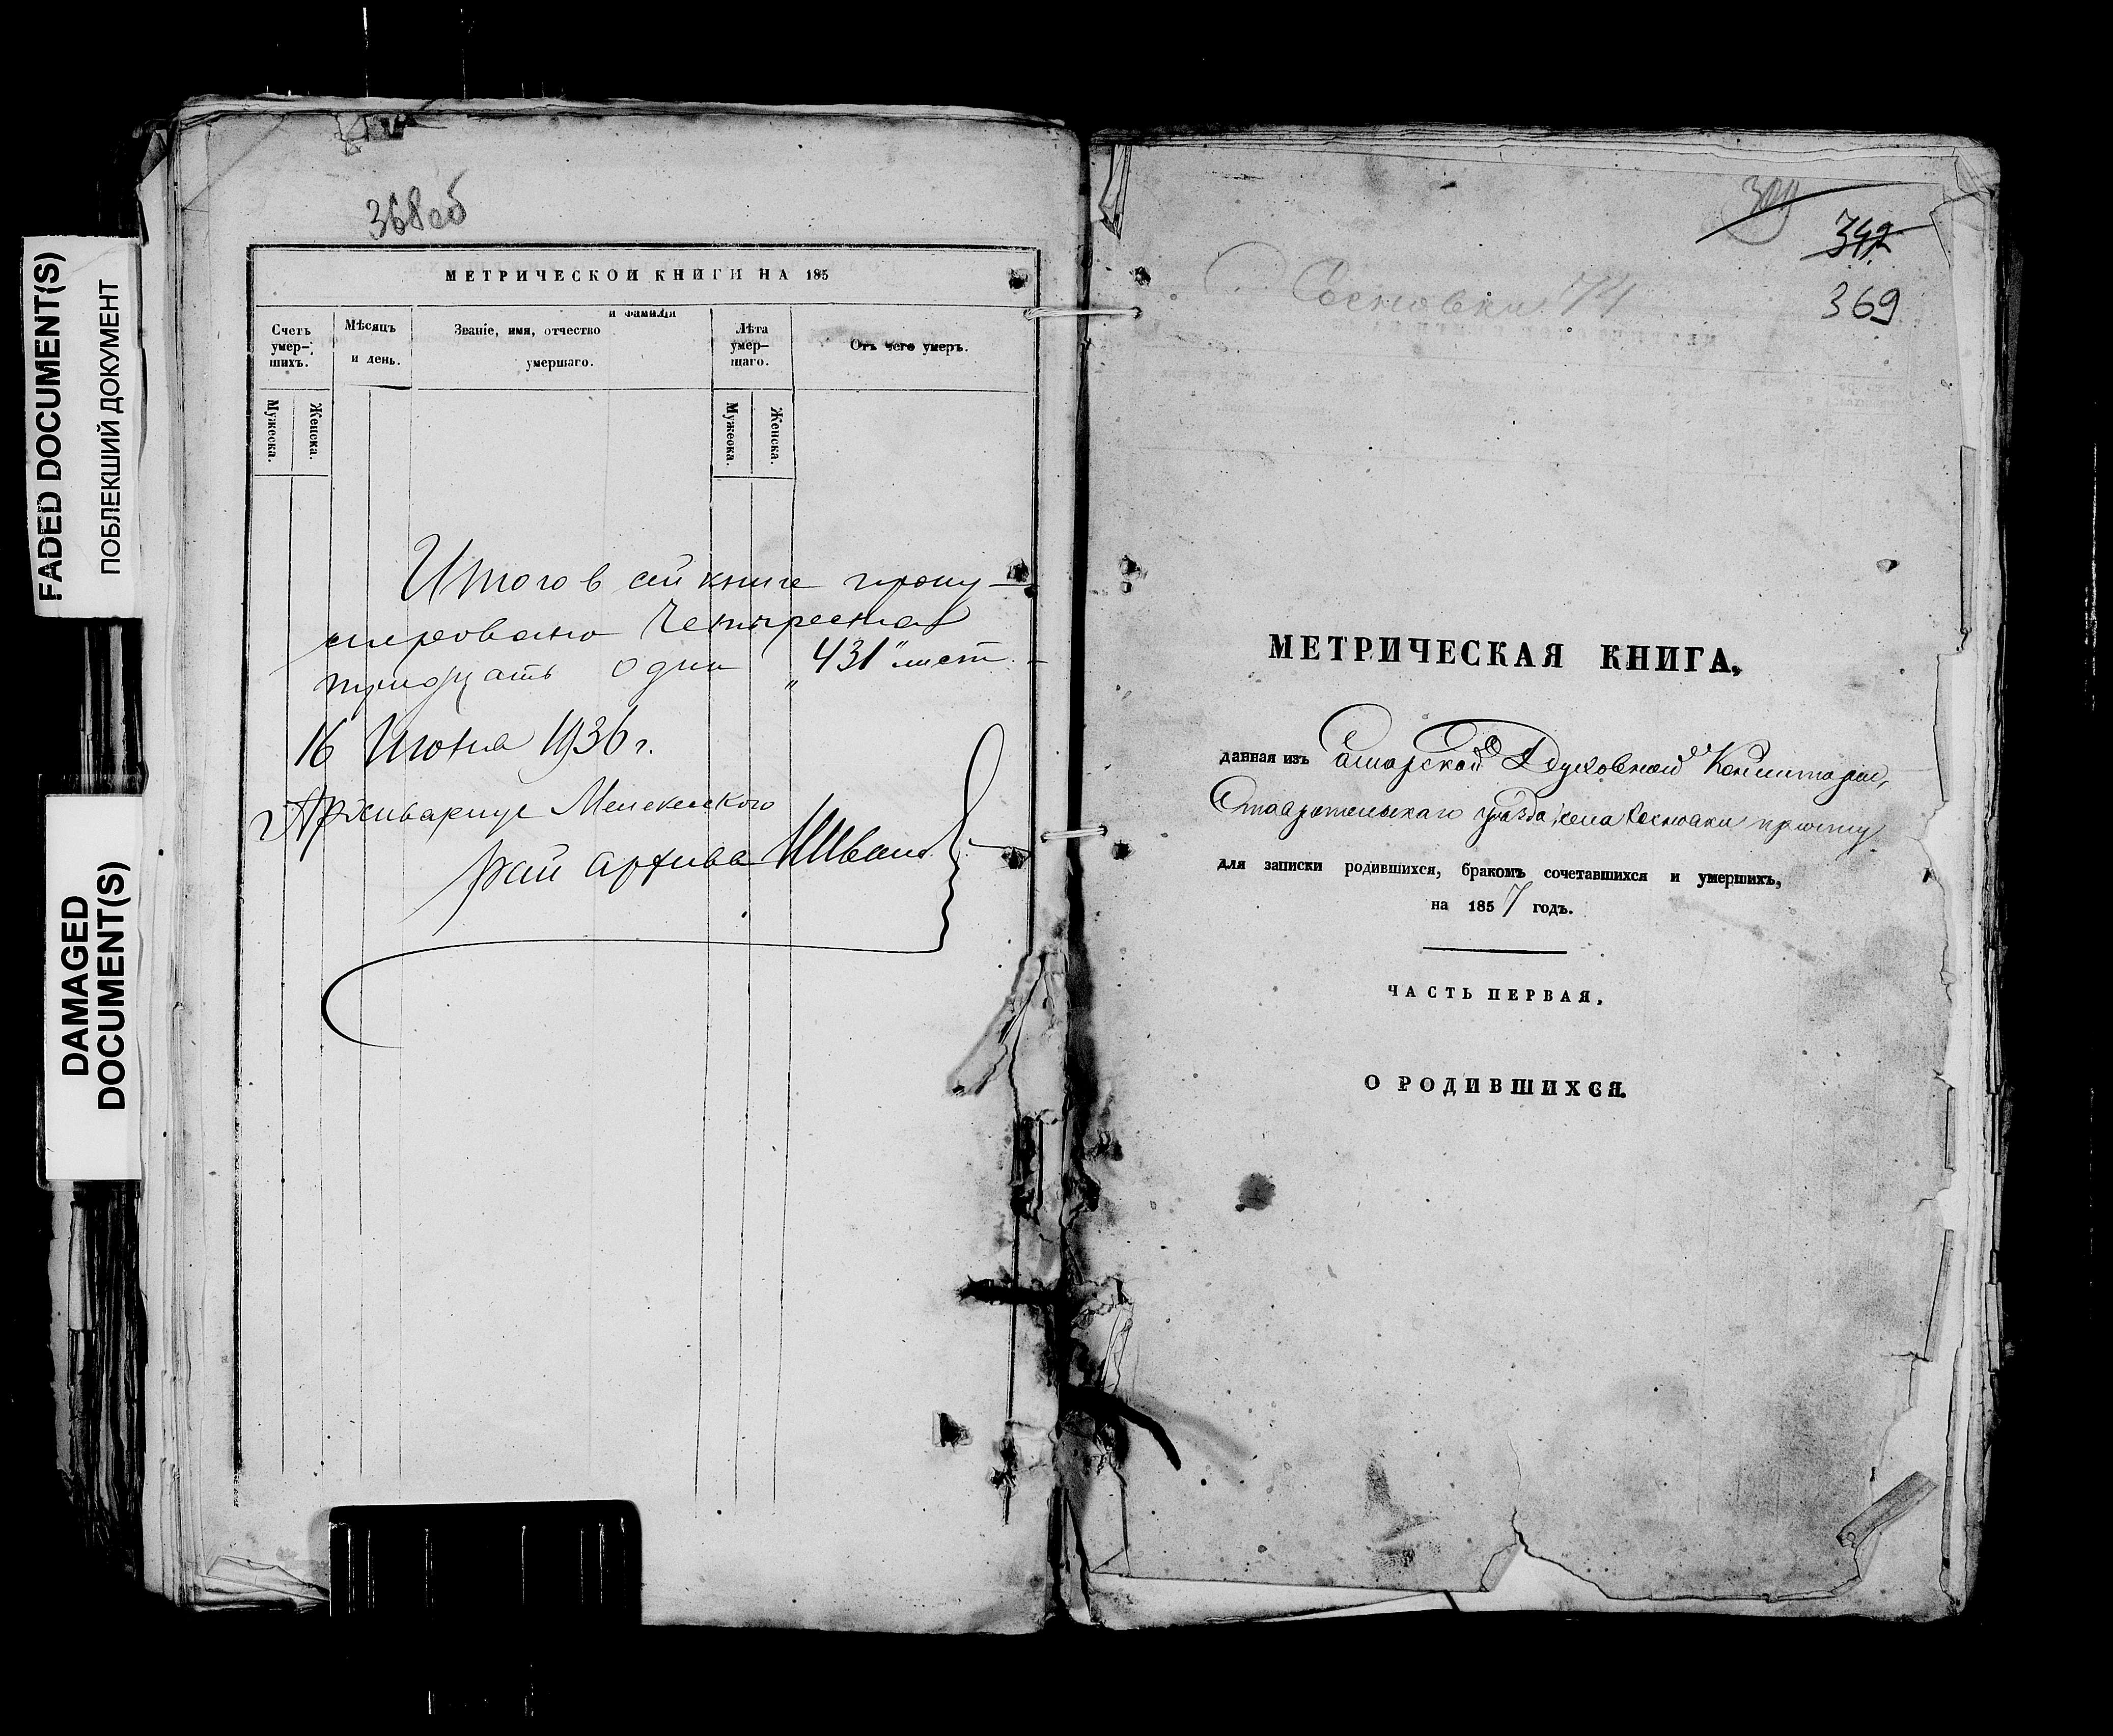 FADED DOCUMENT(S)
ПОБЛЕКШИЙ ДОКУМЕНТ
DAMAGED
DOCUMENT(S)
368об
МЕТРИЧЕСКОИ КНИГИ НА 185
Счетъ умер-шихъ.
Мужеска.
Женска.
Мѣсяцъ и день.
и фамилія
Званіе, имя, отчество
умершаго.
Лѣта умер-шаго.
Мужеска.
Женска.
Отъ чего умеръ.
Итого в сей книге прону-
мировано Четыреста
тридцать один „431" лист.
16 Июня 1936 г.
Архивариус Мелекесского
рай архива
342
369
Сосновки 74
МЕТРИЧЕСКАЯ КНИГА,
данная изъ Самарской Духовной Консисторіи,
Ставропольскаго уѣзда, села Сосновки причту
для записки родившихся, бракомъ сочетавшихся и умершихъ,
на 1857 годъ.
ЧАСТЬ ПЕРВАЯ.
О РОДИВШИХСЯ.